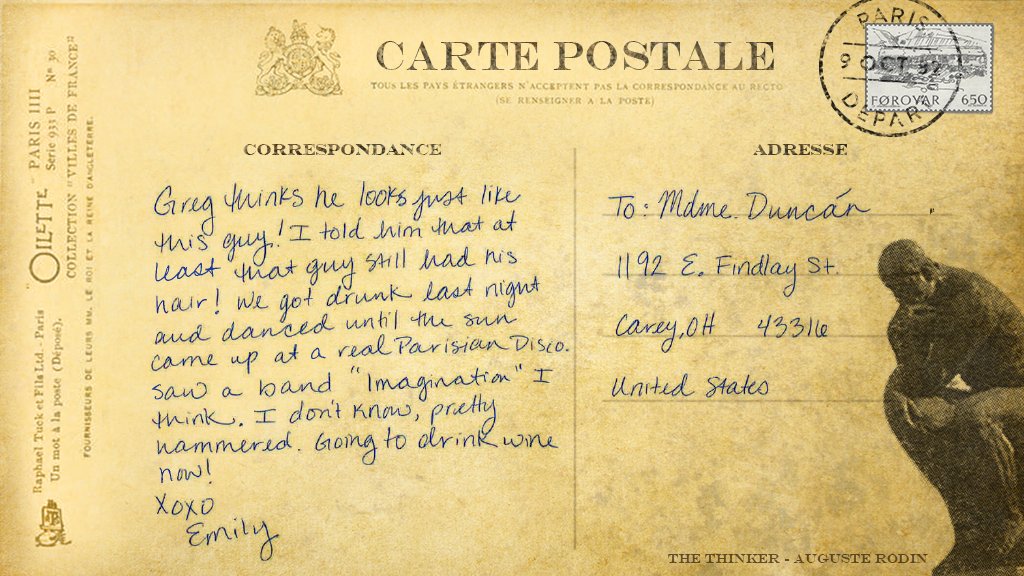 CARTE POSTALE
TOUS LES PAYS ÉTRANGERS N'ACCEPTENT PAS LA CORRESPONDANCE AU RECTO
(SE RENSEIGNER A LA POSTE)
PARIS
9 OCT 92
DEPART
FØROYAR 650
"OILETTE" PARIS IIII
Série 933 P No 30
COLLECTION "VILLES DE FRANCE"
FOURNISSEURS DE LEURS MM. LE ROI ET LA REINE D'ANGLETERRE.
Raphael Tuck et Fils Ltd. - Paris
Un mot à la poste (Déposé).
CORRESPONDANCE
Greg thinks he looks just like
this guy! I told him that at
least that guy still had his
hair! We got drunk last night
and danced until the sun
came up at a real Parisian Disco.
Saw a band "Imagination" I
think. I don't know, pretty
hammered. Going to drink wine
now!
XOXO
Emily
ADRESSE
To: Mdme. Duncán
1192 E. Findlay St.
Carey, OH 43316
United States
THE THINKER - AUGUSTE RODIN